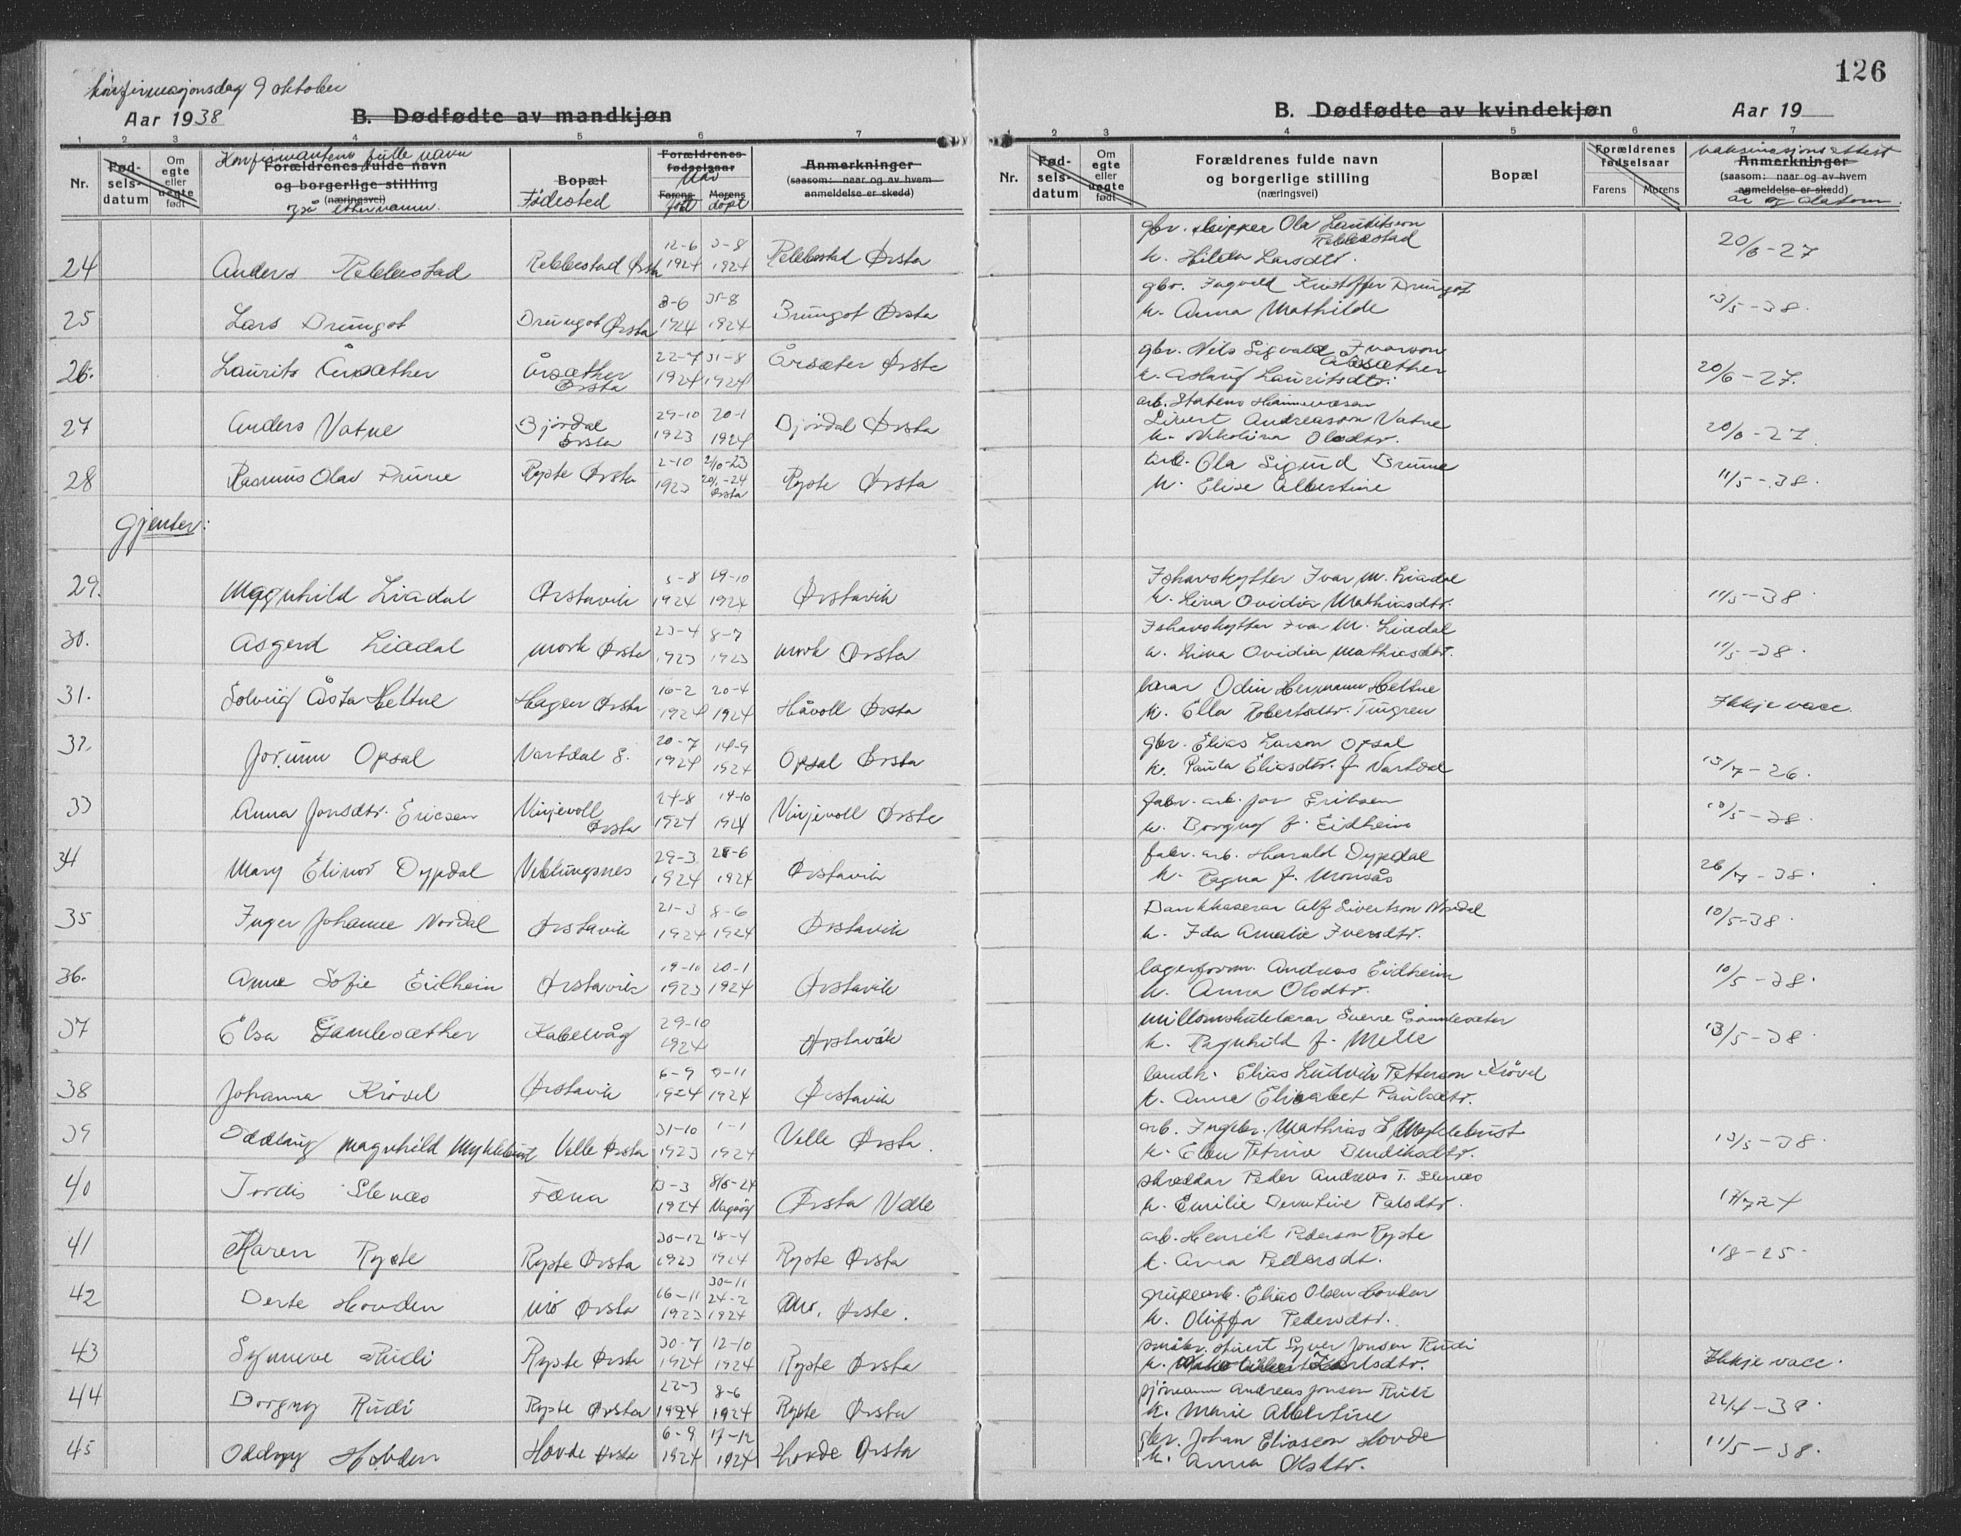 Konfirmasjonsdag 9 oktober
Aar 1938
B. Dødfødte av mandkjøn
1 2 3 4 5 6 7
Nr.
Fød-
sels-
datum
Om
egte
eller
uegte
født
Konfirmantens fulle navn
Forældrenes fulde navn
og borgerlige stilling
(næringsvei)
Bopæl
Fødested
Forældrenes
fødselsaar
Farens
Morens
født
døpt
Anmerkninger
(saasom: naar og av hvem
anmeldelse er skedd)
24 Anders Rebbestad Rebbestad Ørsta 12-6 1924 3-8 1924 Rebbestad Ørsta
25 Lars Brungot Brungot Ørsta 8-6 1924 1924 Brungot Ørsta
26. Laurits Årsæther Årsæther Ørsta 22-7 1924 31-8 1924 Årsæter Ørsta
27 Anders Vatne Bjørdal Ørsta 29-10 1923 20-1 1924 Bjørdal Ørsta
28 Rasmus Olav Brune Rypte Ørsta 2-10 1923 20/1-24 Ørsta Rypte Ørsta
Gjenter:
29. Magnhild Liadal Ørstavik 5-8 1924 19-10 1924 Ørstavik
30. Asgerd Liadal Mork Ørsta 23-4 1923 8-7 1923 Mork Ørsta
31. Solveig Åsta Hettne Hagen Ørsta 16-2 1924 20-4 1924 Håvoll Ørsta
32. Jorunn Opsal Vartdal S. 20-7 1924 14-9 1924 Opsal Ørsta
33 Anna Jonsdtr. Ericsen Vinjevoll Ørsta 24-8 1924 19-10 1924 Vinjevoll Ørsta
34 Mary Elinor Dypdal Veblungsnes 29-3 1924 28-6 1924 Ørstavik
35 Inger Johanne Nordal Ørstavik 21-3 1924 8-6 1924 Ørstavik
36. Anne Sofie Eidheim Ørstavik 19-10 1923 20-1 1924 Ørstavik
37 Elsa Gamlesæther Kabelvåg 29-10 1924 Ørstavik
38 Johanna Krøvel Ørstavik 6-9 1924 9-11 1924 Ørstavik
39 Oddlaug Magnhild Myklebust Velle Ørsta 31-10 1923 1-1 1924 Velle Ørsta.
40 Tordis Stenæs 1924 8/6-24 Ørsta Velle
41 Karen Rypte Rypte Ørsta 30-12 1923 18-4 1924 Rypte Ørsta
42 Berte Hovden Mo Ørsta 16-11 1923 30-11 24-2 1924 Mo, Ørsta.
43 Synneve Rudi Rypte Ørsta 30-7 1924 12-10 1924 Rypte Ørsta
44 Borgny Rudi Rypte Ørsta 22-3 1924 8-6 1924 Rypte Ørsta
45 Oddny Hovden Hovde Ørsta 6-9 1924 17-12 1924 Hovde Ørsta
126
B. Dødfødte av kvindekjøn
Aar 19
1 2 3 4 5 6 7
Nr.
Fød-
sels-
datum
Om
egte
eller
uegte
født
Forældrenes fulde navn
og borgerlige stilling
(næringsvei)
Bopæl
Forældrenes
fødselsaar
Farens
Morens
vaksinasjonsattest
Anmerkninger
(saasom: naar og av hvem
anmeldelse er skedd)
år og datum.
gbr. skipper Ola Lauritson
Rebbestad
k. Hilda Larsdtr. 20/6-27
gbr. Ingvald Kristoffer Brungot
k. Anna Mathilde 13/5-38.
gbr. Nils Sigvald Ivarson
Årsæther
k. Aslaug Lauritsdtr. 20/6-27.
arb. Statens Havnevæsen
Sivert Andreasson Vatne
k. Nikolina Olsdtr. 20/6-27.
arb. Ola Sigurd Brune
k. Elise Albertine 11/5-38.
Ishavskytter Ivar M. Liadal
k. Lina Ovidia Mathiasdtr. 11/5-38.
Ishavskytter Ivar M. Liadal
k. Lina Ovidia Mathiasdtr. 11/5-38.
lærar Odin Hermann Hettne
k. Ella Robertsdtr. Tungren Ikkje vacc.
gbr. Elias Larson Opsal
k. Paula Eliasdtr. f. Vartdal 13/7-26.
fabr. arb. Jon Eriksen
k. Borgny f. Eidheim 10/5-38.
fabr. arb. Harald Dypdal
k. Ragna f. Monsås 26/7-38.
Bankkaserar Alf Sivertson Nordal
k. Ida Amalie Iversdtr. 10/5-38.
lagerform. Andreas Eidheim
k. Anna Olsdtr. 10/5-38.
millomskulelærar Sverre Gamlesæter
k. Ragnhild f. Melle 13/5-38.
landh. Elias Ludvik Petterson Krøvel
k. Anne Elisabet Paulsdtr.
arb. Ingebr. Mathias E. Myklebust
k. Elen Petrine Bendiksdtr. 13/5-38.
skreddar Peder Andreas T. Stenæs
k. Emilie Berntine Palsdtr.
arb. Henrik Pederson Rypte
k. Anna Pedersdt. 1/8-25.
grubearb. Elias Olsen Hovden
k. Oliffa Pedersdtr.
småbr. Sivert Syver Jonsen Rudi
k. Karlsdtr. Ikkje vacc.
sjømann Andreas Jonsen Rudi
k. Marie Albertine 22/4-38.
gbr. Johan Eliassen Hovde
k. Anna Olsdtr. 11/5-38.